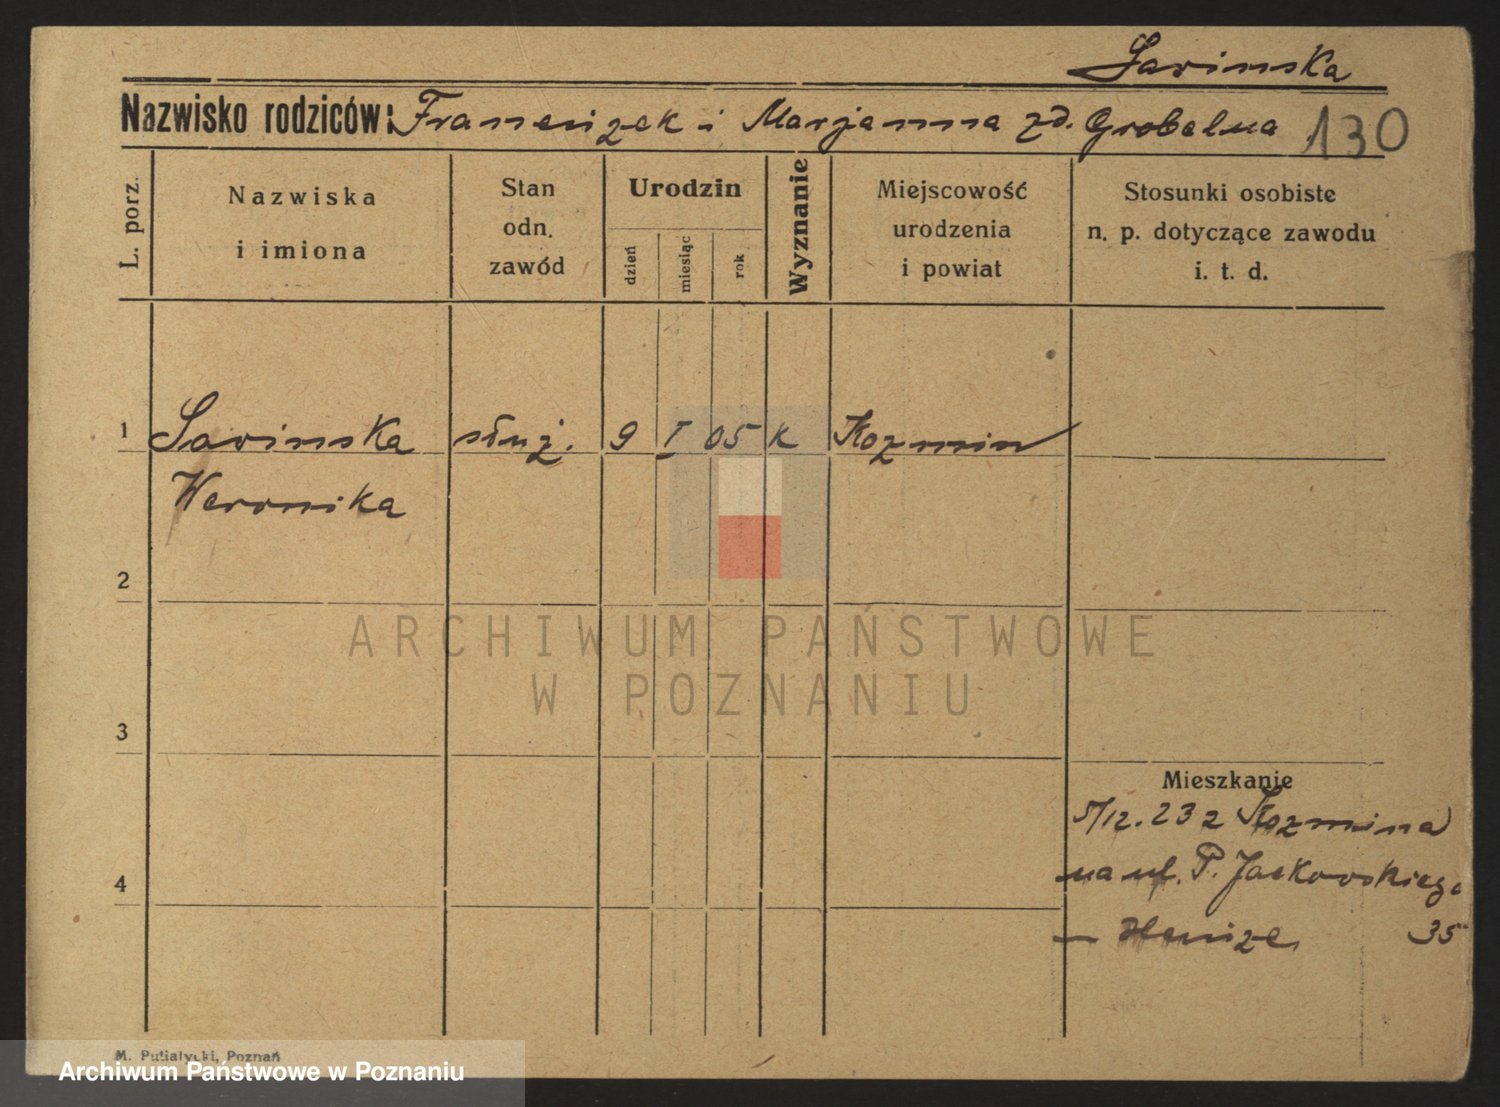 Sarinska
Nazwisko rodziców: Franciszek i Marjanna zd. Grobelna 130
L. porz.
Nazwiska i imiona
Stan odn. zawód
Urodzin
dzień
miesiąc
rok
Wyznanie
Miejscowość urodzenia i powiat
Stosunki osobiste n. p. dotyczące zawodu i. t. d.
1 Sarinska służ. 9 I 05 K Kozmin
Weronika
2
ARCHIWUM PAŃSTWOWE
W POZNANIU
3
Mieszkanie
5/12. 23 z Kozmina
4 na ul. P. Jackowskiego
35
M. Putiatycki, Poznań
Archiwum Państwowe w Poznaniu